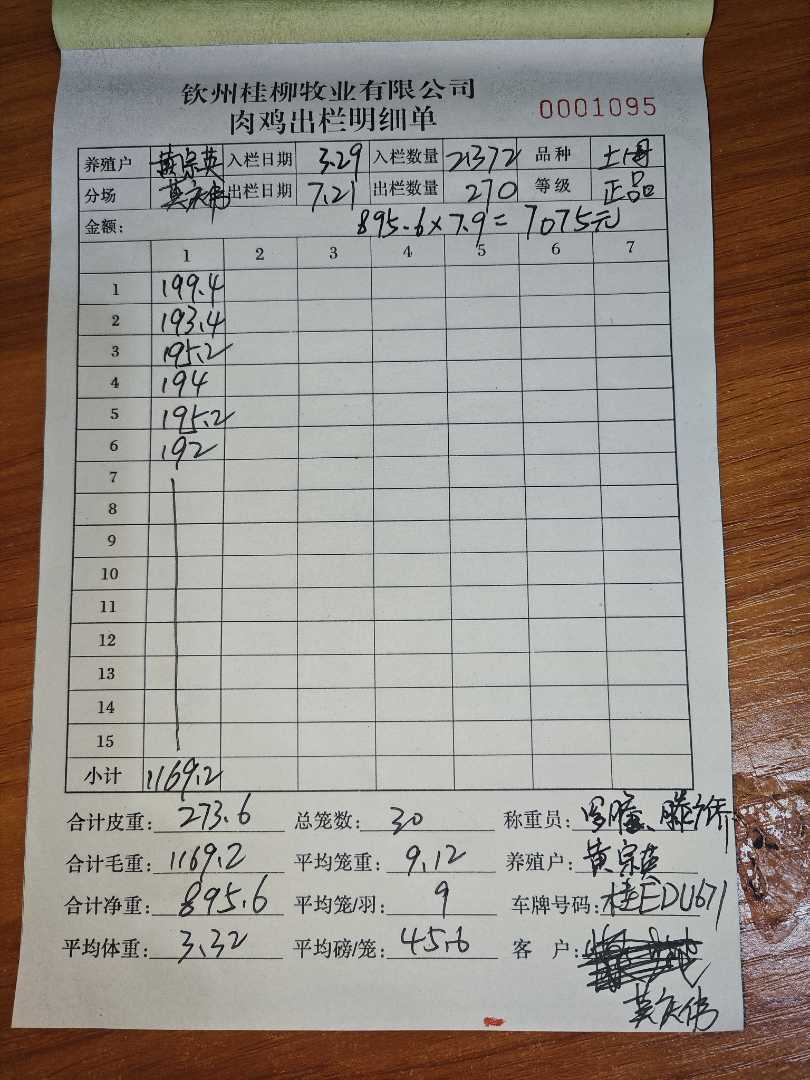 钦州桂柳牧业有限公司
肉鸡出栏明细单 0001095
养殖户 黄宗英 入栏日期 3.29 入栏数量 21372 品种
分场 莫庆伟 出栏日期 7.21 出栏数量 270 等级 正品
金额: 895.6×7.9=7075元
1 2 3 4 5 6 7
1 199.4
2 193.4
3 195.2
4 194
5 195.2
6 192
7
8
9
10
11
12
13
14
15
小计 1169.2
合计皮重: 273.6 总笼数: 30 称重员:
合计毛重: 1169.2 平均笼重: 9.12 养殖户: 黄宗英
合计净重: 895.6 平均笼/羽: 9 车牌号码: 桂EDU671
平均体重: 3.32 平均磅/笼: 45.6 客 户:
莫庆伟